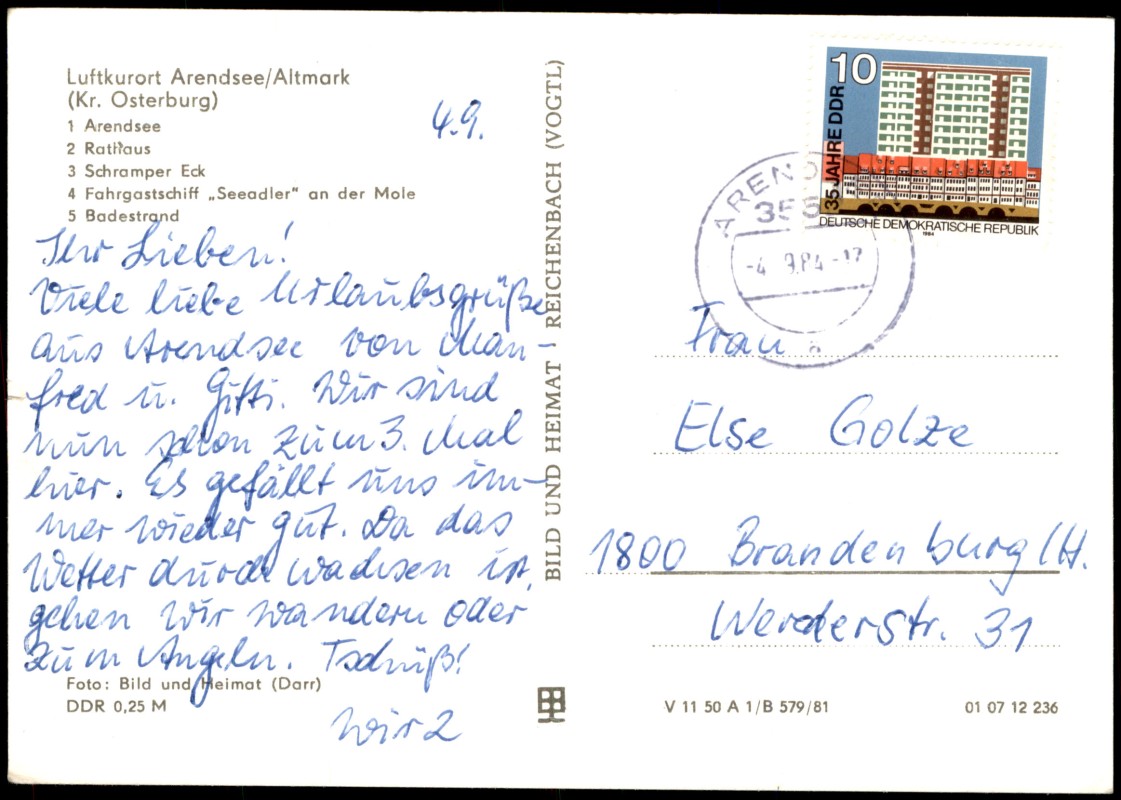 Luftkurort Arendsee/Altmark
(Kr. Osterburg)
1 Arendsee
2 Rathaus
3 Schramper Eck
4 Fahrgastschiff „Seeadler" an der Mole
5 Badestrand
4.9.
Ihr Lieben!
Viele liebe Urlaubsgrüße
aus Arendsee von Man-
fred u. Gitti. Wir sind
nun schon zum 3. Mal
hier. Es gefällt uns im-
mer wieder gut. Da das
Wetter durchwachsen ist,
gehen wir wandern oder
zum Angeln. Tschüß!
Wir 2
Foto: Bild und Heimat (Darr)
DDR 0,25 M
BILD UND HEIMAT · REICHENBACH (VOGTL)
10
35 JAHRE DDR
DEUTSCHE DEMOKRATISCHE REPUBLIK
1984
-4. 9.84-17
a
Frau
Else Golze
1800 Brandenburg/H.
Werderstr. 31
V 11 50 A 1/B 579/81
01 07 12 236